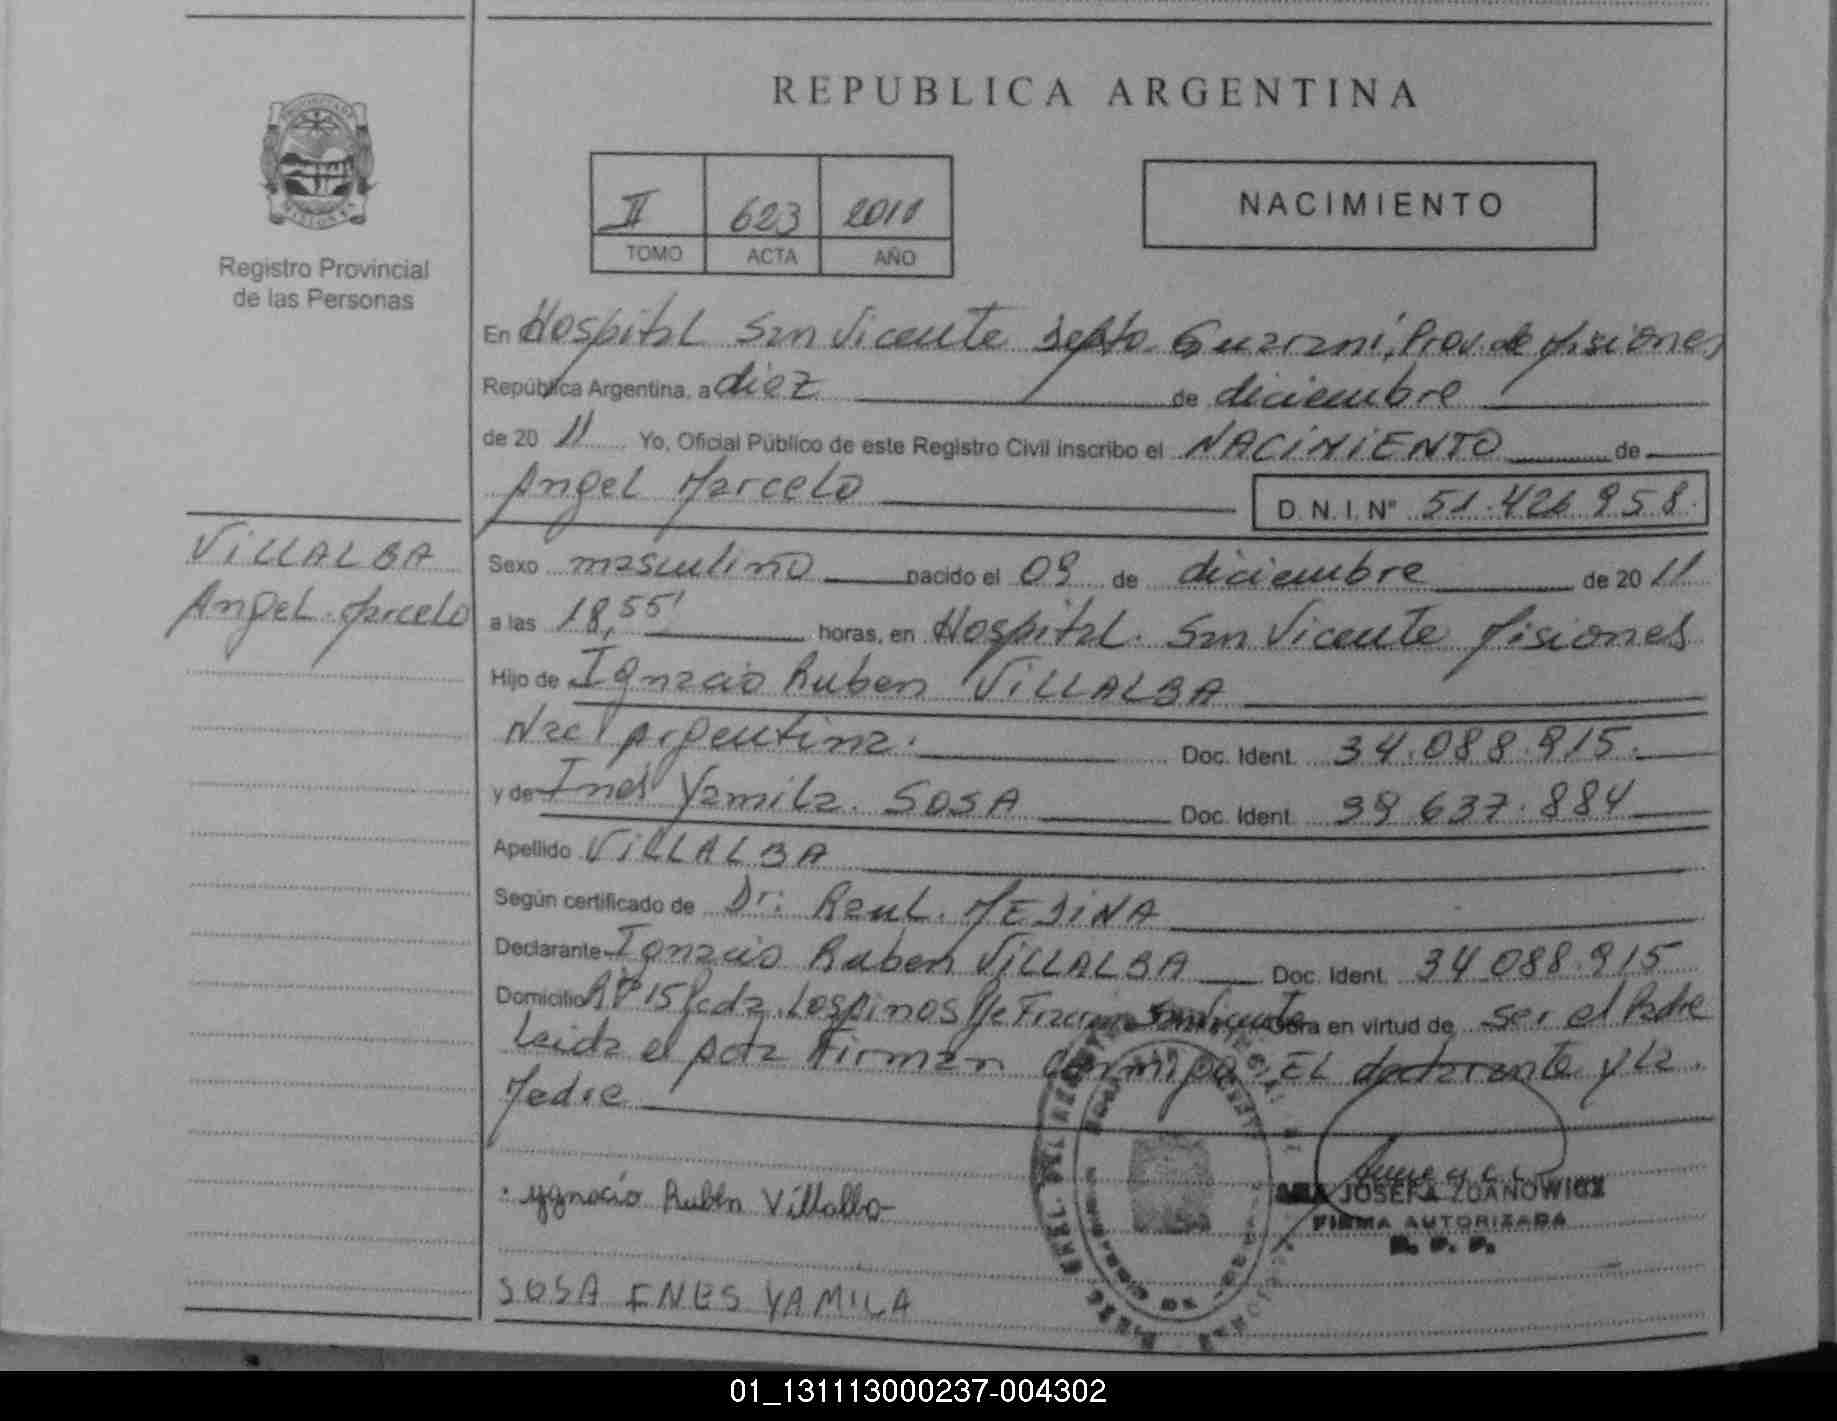 REPUBLICA ARGENTINA
II 623 2011
TOMO ACTA AÑO
NACIMIENTO
Registro Provincial
de las Personas
En Hospital San Vicente Depto. Guarani, Prov. de Misiones
República Argentina, a diez de diciembre
de 20 11 Yo, Oficial Público de este Registro Civil inscribo el NACIMIENTO de
Angel Marcelo D.N.I. Nº 51.426.958.
VILLALBA
Angel Marcelo
Sexo masculino nacido el 09 de diciembre de 20 11
a las 18,55' horas, en Hospital. San Vicente Misiones
Hijo de Ignacio Ruben VILLALBA
Nac Argentina. Doc. Ident. 34.088.915.
y de Ines Yamila. SOSA Doc. Ident. 39 637.884
Apellido VILLALBA
Según certificado de Dr: Raul. MEDINA
Declarante Ignacio Ruben VILLALBA Doc. Ident. 34 088.915
Domicilio Los pinos en virtud de ser el Padre
Leida el acta Firman conmigo: EL declarante y la.
Madre
Ygnacio Rubén Villalba
ANA JOSEFA ZDANOWICZ
FIRMA AUTORIZADA
R. P. P.
SOSA INES YAMILA
01_131113000237-004302